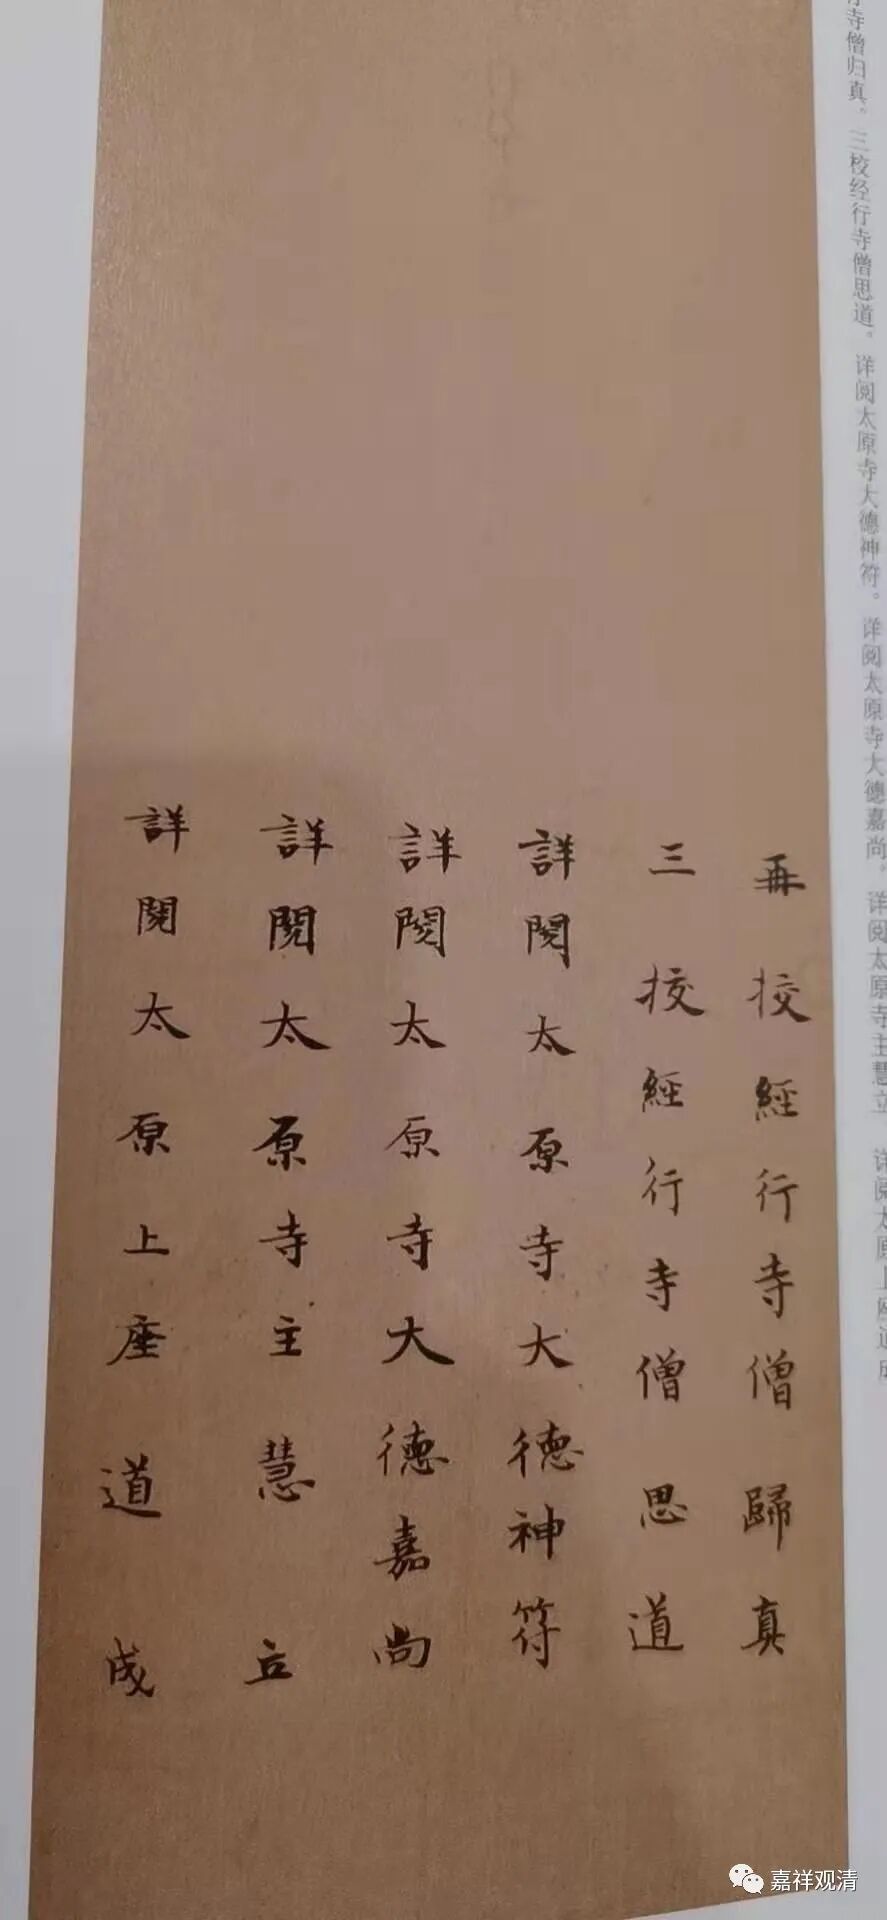 寺僧归真。三校经行寺僧思道。详阅太原寺大德神符。详阅太原寺大德嘉尚。详阅太原寺主慧立 详阅太原上座道成
再挍經行寺僧歸真
三挍經行寺僧思道
詳閱太原寺大德神符
詳閱太原寺大德嘉尚
詳閱太原寺主慧立
詳閱太原上座道成
嘉祥观清